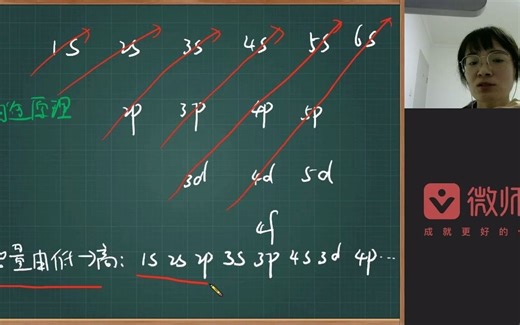 1s 2s 3s 4s 5s 6s
原理
2p 3p 4p 5p
3d 4d 5d
4f
量由低→高: 1s 2s 2p 3s 3p 4s 3d 4p…
微师
成就更好的